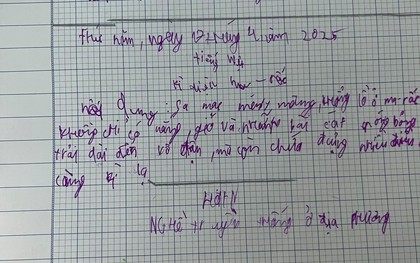 thứ năm, ngày 17 tháng 4 năm 2025
tiếng việt
kì diệu ma-rốc
nội dung: Sa mạc mênh mông, khổng lồ ở ma-rốc
không chỉ có nắng, gió và những bãi cát nóng bỏng
trải dài đến vô tận, mà còn chứa đựng nhiều điều
cũng kì lạ
HĐTN
NGHỀ truyền thống ở địa phương